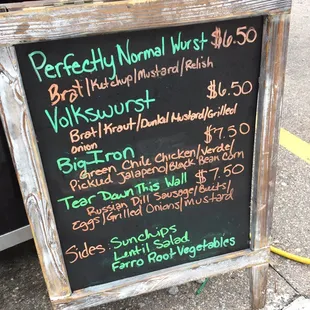 Perfectly Normal Wurst $6.50
Brat/Ketchup/Mustard/Relish
Volkswurst $6.50
Brat/Kraut/Dunkel Mustard/Grilled
Onion
Big Iron $7.50
Green Chile Chicken/Verde/
Pickled Jalapeño/Black Bean Corn
Tear Down This Wall $7.50
Russian Dill Sausage/Beets/
Eggs/Grilled Onions/Mustard
Sides: Sunchips
Lentil Salad
Farro Root Vegetables